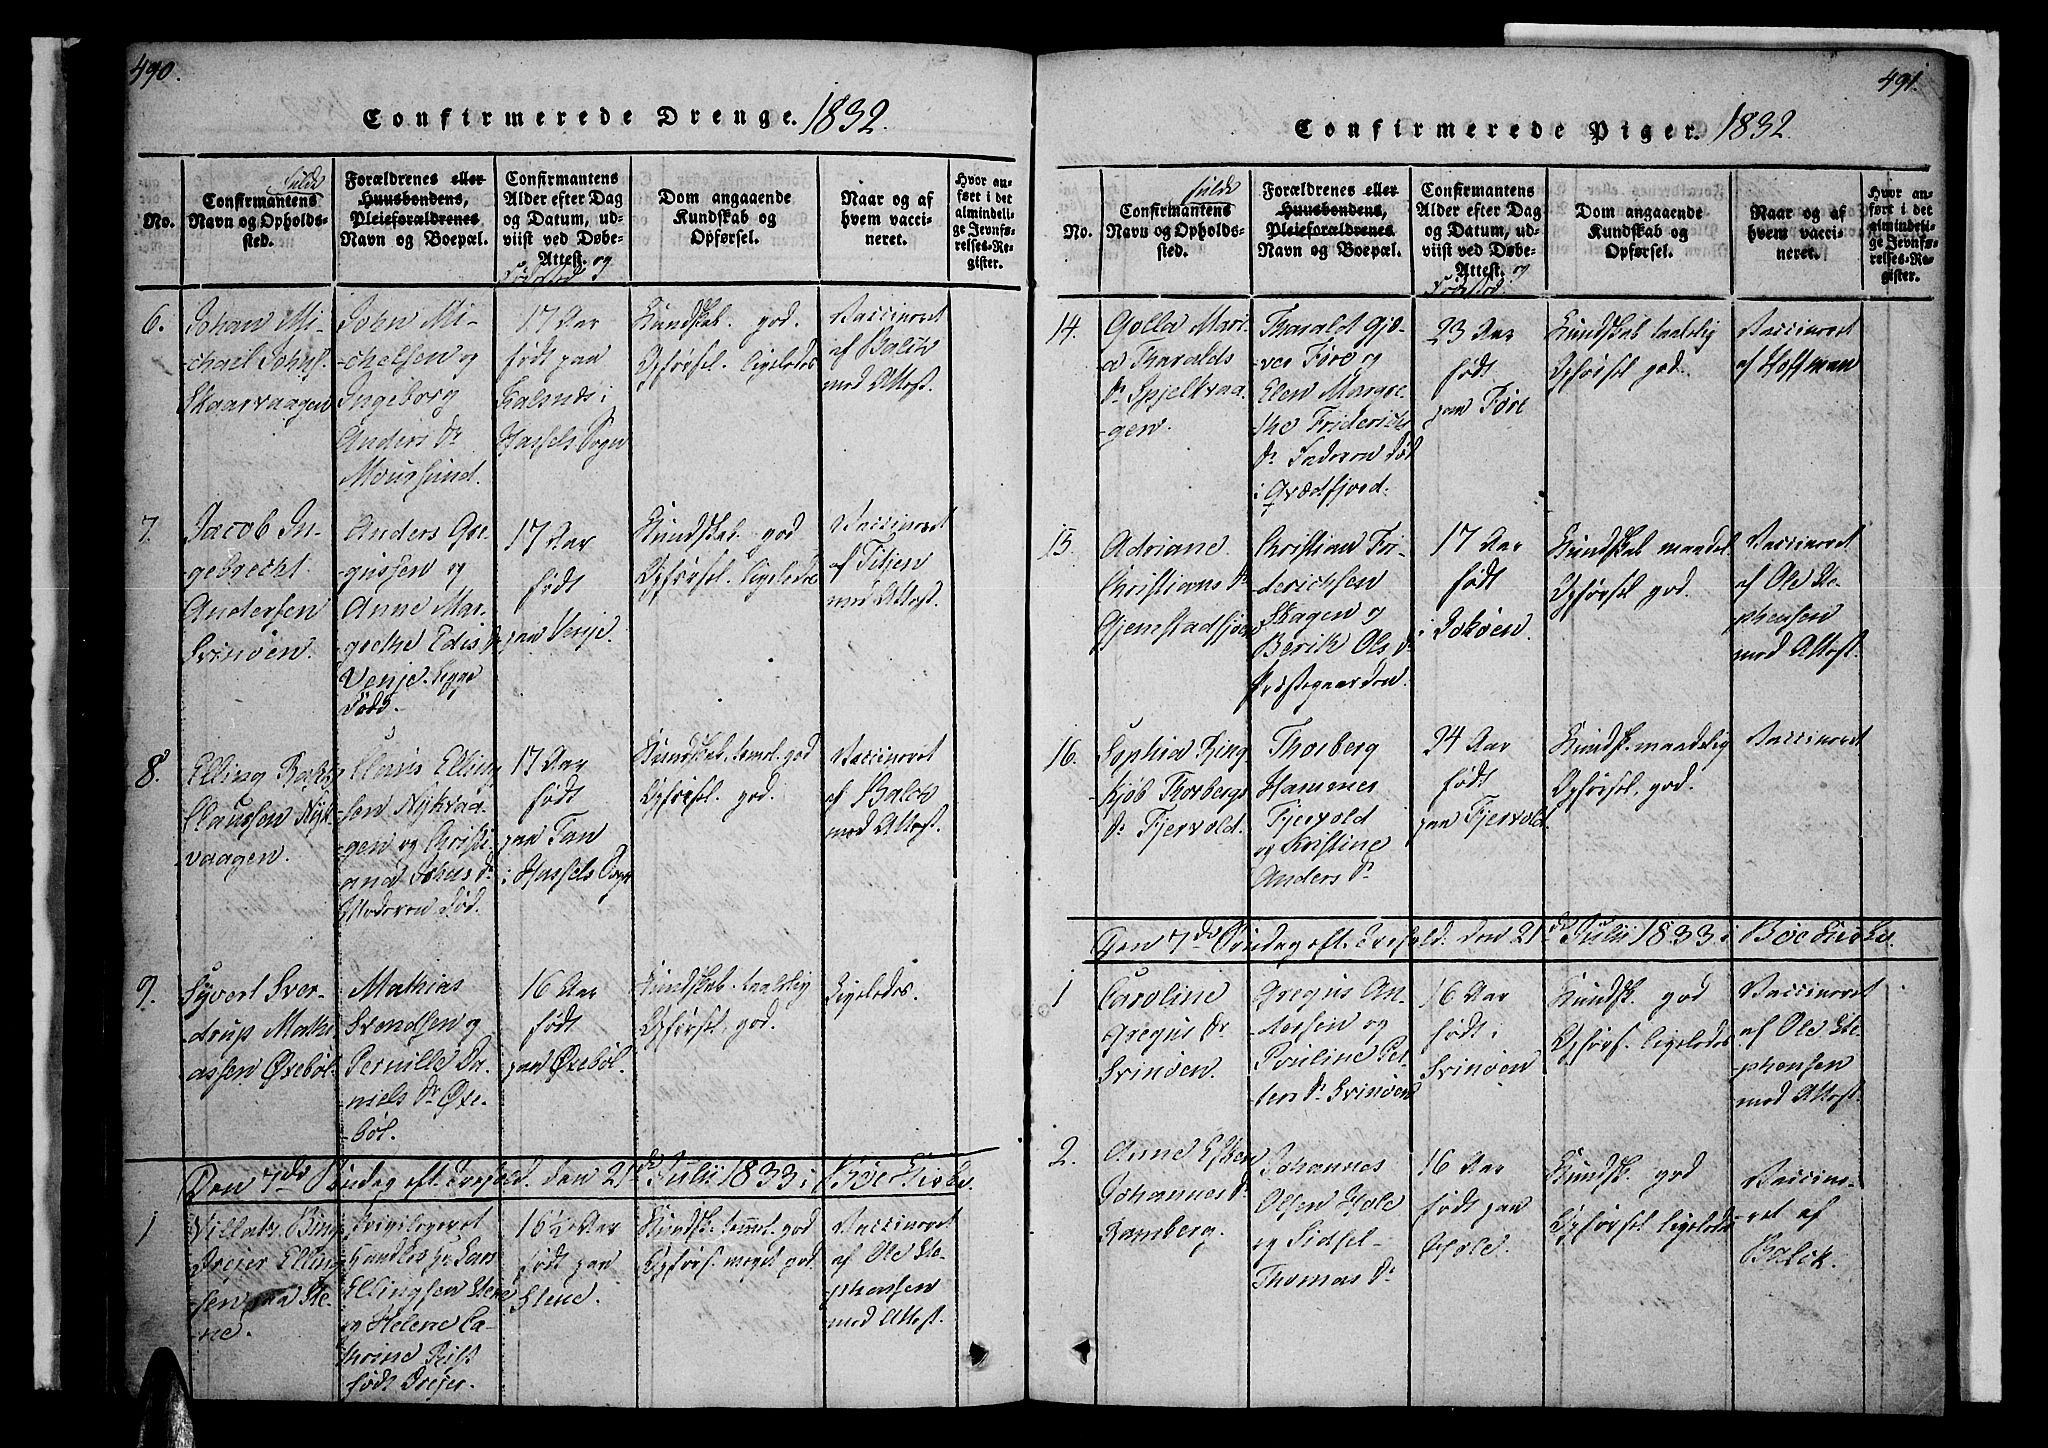 490.
Confirmerede Drenge. 1832.
No.
fulde
Confirmantens
Navn og Opholds-
sted.
Forældrenes eller
Huusbondens,
Pleieforældrenes
Navn og Boepæl.
Confirmantens
Alder efter Dag
og Datum, ud-
viist ved Døbe-
Attest. og
Fødested
Dom angaaende
Kundskab og
Opførsel.
Naar og af
hvem vacci-
neret.
Hvor an-
ført i det
almindeli-
ge Jevnfø-
relses-Re-
gister.
6.
Johan Mi-
chael Johns.
Skaarvaagen
John Mi-
-chelsen og
Ingeborg
Anders Dr
Moursund.
17 Aar
født paa
Kalsnæs i
Hassels Sogn
Kundskab. god.
Opførsel. ligeledes
Vaccineret
af Balch
med Attest.
7.
Jacob In-
gebrecht
Andersen
Svinøen.
Anders Gre-
gussen og
Anne Mar-
grethe Edis Dr
Verje. begge
Død.
17 Aar
født
paa Verje.
Kundskab. god
Opførsel. ligeledes
Vaccineret
af
med Attest.
8.
Elling
Claussen Nyk-
vaagen.
Claus Elling-
-sen Nykvaa-
-gen og Christi-
ana Johns Dr
Moderen Død.
17 Aar
født
paa
i Hassels Sogn
Kundskab. temel. god
Opførsel. god.
Vaccineret
af Balch
med Attest.
9.
Syvert Sver-
drup Mathi-
assen Øxebøl.
Mathias
Svendsen og
Pernille Da-
-niels Dr Øxe-
-bøl.
16 Aar
født
paa Øxebøl.
Kundskab. taalelig
Opførsel. god.
Ligeledes.
Den 7de Søndag eft. Trefold. den 21de Julii 1833 i Bøe Kirke.
1
Dreier Elling-
sen paa Ste-
ne.
Privilegeret
Handler Hr Lars
Ellingsen Stene
og Helene Ca-
thrine
født Dreier.
16½ Aar
født paa
Stene.
Kundsk. temmel. god
Opførs. meget god
Vaccineret
af Ole Ste-
-phensen
med Attest.
491.
Confirmerede Piger. 1832
No.
fulde
Confirmantens
Navn og Opholds-
sted.
Forældrenes eller
Huusbondens,
Pleieforældrenes
Navn og Boepæl.
Confirmantens
Alder efter Dag
og Datum, ud-
viist ved Døbe-
Attest. og
Fødested.
Dom angaaende
Kundskab og
Opførsel.
Naar og af
hvem vacci-
neret.
Hvor an-
ført i det
almindeli-
ge Jevnfø-
relses-Re-
gister.
14.
Golla Mari-
a Tharalds
Dr Spjelkvaa-
-gen.
Tharald Gjæ-
-ver Føre og
Elen Margre-
the Friderichs
Dr Faderen Død
i Qvædfjord.
23 Aar
født
paa Føre
Kundskab taalelig
Opførsel god.
Vaccineret
af Hoffman
15.
Adriane
Christians Dr
Gjemstadfjor
Christian Fri-
derichsen
Skagen og
Berik Ols Dr
Præstegaarden.
17 Aar
født
i Jokøen.
Kundskab maadel.
Opførsel god.
Vaccineret
af Ole Ste-
phensen
med Attest.
16.
Sophia Ring
-kjøb Thorbergs
Dr Fjervold.
Thorberg
Hammes
Fjervold
og Kristine
Anders Dr
24 Aar
født
paa Fjervold.
Kundsk. maadelig
Opførsel. god.
Vaccineret
Den 7de Søndag eft. Trefold. den 21de Julii 1833 i Bøe Kirke.
1
Caroline
Gregus Dr
Svinøen.
Gregus An-
-dersen og
Pouline Pet-
-ters Dr Svinøen
16 Aar
født i
Svinøen
Kundsk. god
Opførs. ligeledes
Vaccineret
af Ole Ste-
-phensen
med Attest.
2.
Anne Esther
Johannes Dr
Ramberg.
Johannes
Olsen Hole
og Sidsel
Thomas Dr
16 Aar
født paa
Hole.
Kundsk. god
Opførsel ligeledes
Vaccine-
-ret af
Balch.